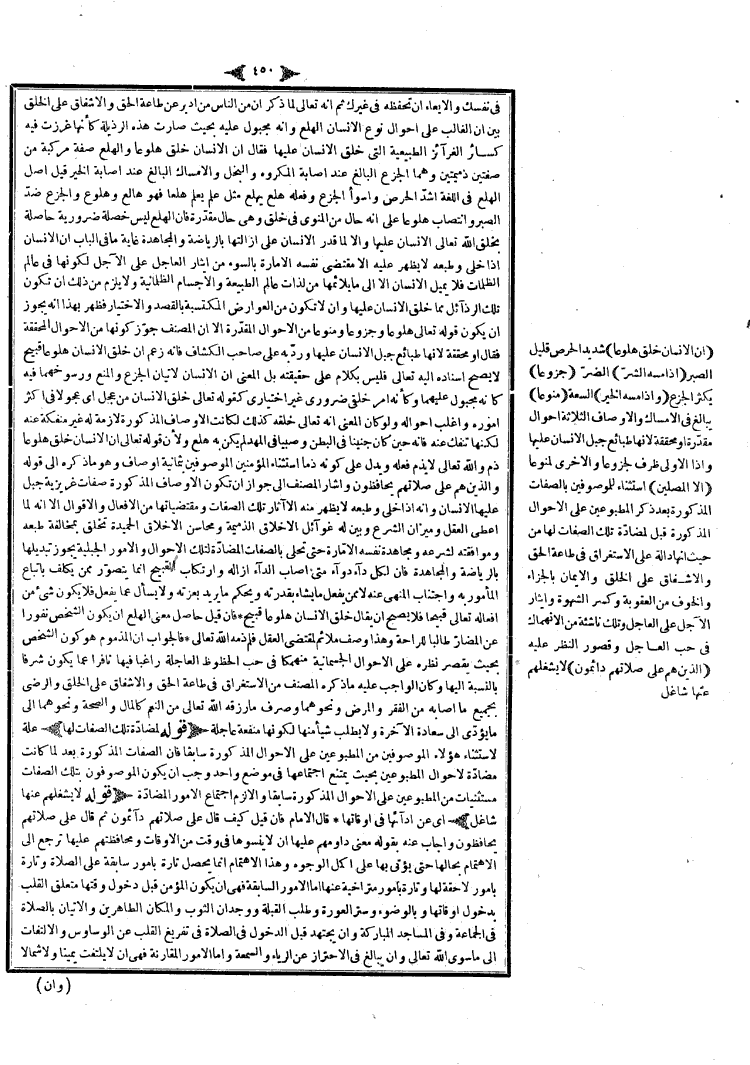 ٤٥٠
فى نفسك والايعاء ان تحفظه فى غيرك ثم انه تعالى لما ذكر ان من الناس من ادبر عن طاعة الحق والاشفاق على الخلق
بين ان الغالب على احوال نوع الانسان الهلع وانه مجبول عليه بحيث صارت هذه الرذيلة كأنها غرزت فيه
كسائر الغرآئز الطبيعية التى خلق الانسان عليها فقال ان الانسان خلق هلوعا والهلع صفة مركبة من
صفتين ذميمتين وهما الجزع البالغ عند اصابة المكروه والبخل والامساك البالغ عند اصابة الخير قيل اصل
الهلع فى اللغة اشد الحرص واسوأ الجزع وفعله هلع يهلع مثل علم يعلم هلعا فهو هالع وهلوع والجزع ضد
الصبر وانتصاب هلوعا على انه حال من المنوى فى خلق وهى حال مقدّرة فان الهلع ليس خصلة ضرورية حاصلة
بخلق الله تعالى الانسان عليها والا لما قدر الانسان على ازالتها بالرياضة والمجاهدة غاية مافى الباب ان الانسان
اذا خلى وطبعه لايظهر عليه الا مقتضى نفسه الامارة بالسوء من ايثار العاجل على الآجل لكونها فى عالم
الظلمات فلا يميل الانسان الا الى مايلائمها من لذات عالم الطبيعة والاجسام الظلمانية ولايلزم من ذلك ان تكون
تلك الرذآئل مما خلق الانسان عليها وان لاتكون من العوارض المكتسبة بالقصد والاختيار فظهر بهذا انه يجوز
ان يكون قوله تعالى هلوعا وجزوعا ومنوعا من الاحوال المقدّرة الا ان المصنف جوّز كونها من الاحوال المحققة
فقال او محققة لانها طبائع جبل الانسان عليها وردّ به على صاحب الكشاف فانه زعم ان خلق الانسان هلوعا قبيح
لايصح اسناده اليه تعالى فليس بكلام على حقيقته بل المعنى ان الانسان لاتيان الجزع والمنع ورسوخهما فيه
كانه مجبول عليهما وكأنه امر خلق ضرورى غير اختيارى كقوله تعالى خلق الانسان من عجل اى عجولا فى اكثر
اموره واغلب احواله ولو كان المعنى انه تعالى خلقه كذلك لكانت الاوصاف المذكورة لازمة له غير منفكة عنه
لكنها تنفك عنه فانه حين كان جنينا فى البطن وصبيا فى المهد لم يكن به هلع ولأن قوله تعالى ان الانسان خلق هلوعا
ذم والله تعالى لايذم فعله ويدل على كونه ذما استثناء المؤمنين الموصوفين بثمانية اوصاف وهو ماذكره الى قوله
والذين هم على صلاتهم يحافظون واشار المصنف الى جواز ان تكون الاوصاف المذكورة صفات غريزية جبل
عليها الانسان وانه اذا خلى وطبعه لايظهر منه الا آثار تلك الصفات ومقتضياتها من الافعال والاقوال الا انه لما
اعطى العقل وميزان الشرع وبين له غوآئل الاخلاق الذميمة ومحاسن الاخلاق الحميدة تخلق بمخالفة طبعه
وموافقته لشرعه ومجاهدة نفسه الامّارة حتى تحلى بالصفات المضادّة لتلك الاحوال والامور الجبلية يجوز تبديلها
بالرياضة والمجاهدة فان لكل دآء دوآء متى اصاب الدآء ازاله وارتكاب القبيح انما يتصوّر ممن يكلف باتباع
المأمور به واجتناب المنهى عنه لا ممن يفعل مايشاء بقدرته ويحكم مايريد بعزته ولايسأل عما يفعل فلا يكون شئ من
افعاله تعالى قبيحا فلا يصح ان يقال خلق الانسان هلوعا قبيح * فان قيل حاصل معنى الهلع ان يكون الشخص نفورا
عن المضارّ طالبا للراحة وهذا وصف ملائم لمقتضى العقل فلم ذمه الله تعالى * فالجواب ان المذموم هو كون الشخص
بحيث يقصر نظره على الاحوال الجسمانية منهمكا فى حب الحظوظ العاجلة راغبا فيها نافرا عما يكون شرفا
بالنسبة اليها وكان الواجب عليه ماذكره المصنف من الاستغراق فى طاعة الحق والاشفاق على الخلق والرضى
بجميع ما اصابه من الفقر والمرض ونحوهما وصرف مارزقه الله تعالى من النعم كالمال والصحة ونحوهما الى
مايؤدّى الى سعادة الآخرة ولا يطلب شيأ منها لكونها منفعة عاجلة ﴿ قوله لمضادّة تلك الصفات لها ﴾ علة
لاستثناء هؤلاء الموصوفين من المطبوعين على الاحوال المذكورة سابقا فان الصفات المذكورة بعد لما كانت
مضادّة لاحوال المطبوعين بحيث يمتنع اجتماعها فى موضع واحد وجب ان يكون الموصوفون بتلك الصفات
مستثنيات من المطبوعين على الاحوال المذكورة سابقا والا لزم اجتماع الامور المضادّة ﴿ قوله لايشغلهم عنها
شاغل ﴾ اى عن ادآئها فى اوقاتها * قال الامام فان قيل كيف قال على صلاتهم دآئمون ثم قال على صلاتهم
يحافظون واجاب عنه بقوله معنى داومهم عليها ان لاينسوها فى وقت من الاوقات ومحافظتهم عليها ترجع الى
الاهتمام بحالها حتى يؤتى بها على اكمل الوجوه وهذا الاهتمام انما يحصل تارة بامور سابقة على الصلاة وتارة
بامور لاحقة لها وتارة بامور متراخية عنها اما الامور السابقة فهى ان يكون المؤمن قبل دخول وقتها متعلق القلب
بدخول اوقاتها وبالوضوء وستر العورة وطلب القبلة ووجدان الثوب والمكان الطاهرين والاتيان بالصلاة
فى الجماعة وفى المساجد المباركة وان يجتهد قبل الدخول فى الصلاة فى تفريغ القلب عن الوساوس والالتفات
الى ماسوى الله تعالى وان يبالغ فى الاحتراز عن الرياء والسمعة واما الامور المقارنة فهى ان لايلتفت يمينا ولا شمالا
(وان)
(ان الانسان خلق هلوعا) شديد الحرص قليل
الصبر (اذا مسه الشرّ) الضرّ (جزوعا)
يكثر الجزع (واذا مسه الخير) السعة (منوعا)
يبالغ فى الامساك والاوصاف الثلاثة احوال
مقدّرة او محققة لانها طبائع جبل الانسان عليها
واذا الاولى ظرف لجزوعا والاخرى لمنوعا
(الا المصلين) استثناء للموصوفين بالصفات
المذكورة بعد ذكر المطبوعين على الاحوال
المذكورة قبل لمضادّة تلك الصفات لها من
حيث انها دالة على الاستغراق فى طاعة الحق
والاشفاق على الخلق والايمان بالجزاء
والخوف من العقوبة وكسر الشهوة وايثار
الآجل على العاجل وتلك ناشئة من الانهماك
فى حب العاجل وقصور النظر عليه
(الذين هم على صلاتهم دائمون) لايشغلهم
عنها شاغل